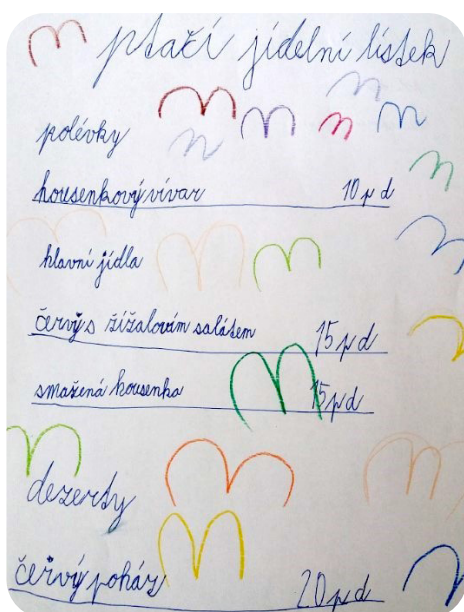 ptačí jídelní lístek
polévky
housenkový vívar 10 pd
hlavní jídla
červy s žížalovím salátem 15 pd
smažená housenka 15 pd
dezerty
červý pohár 20 pd